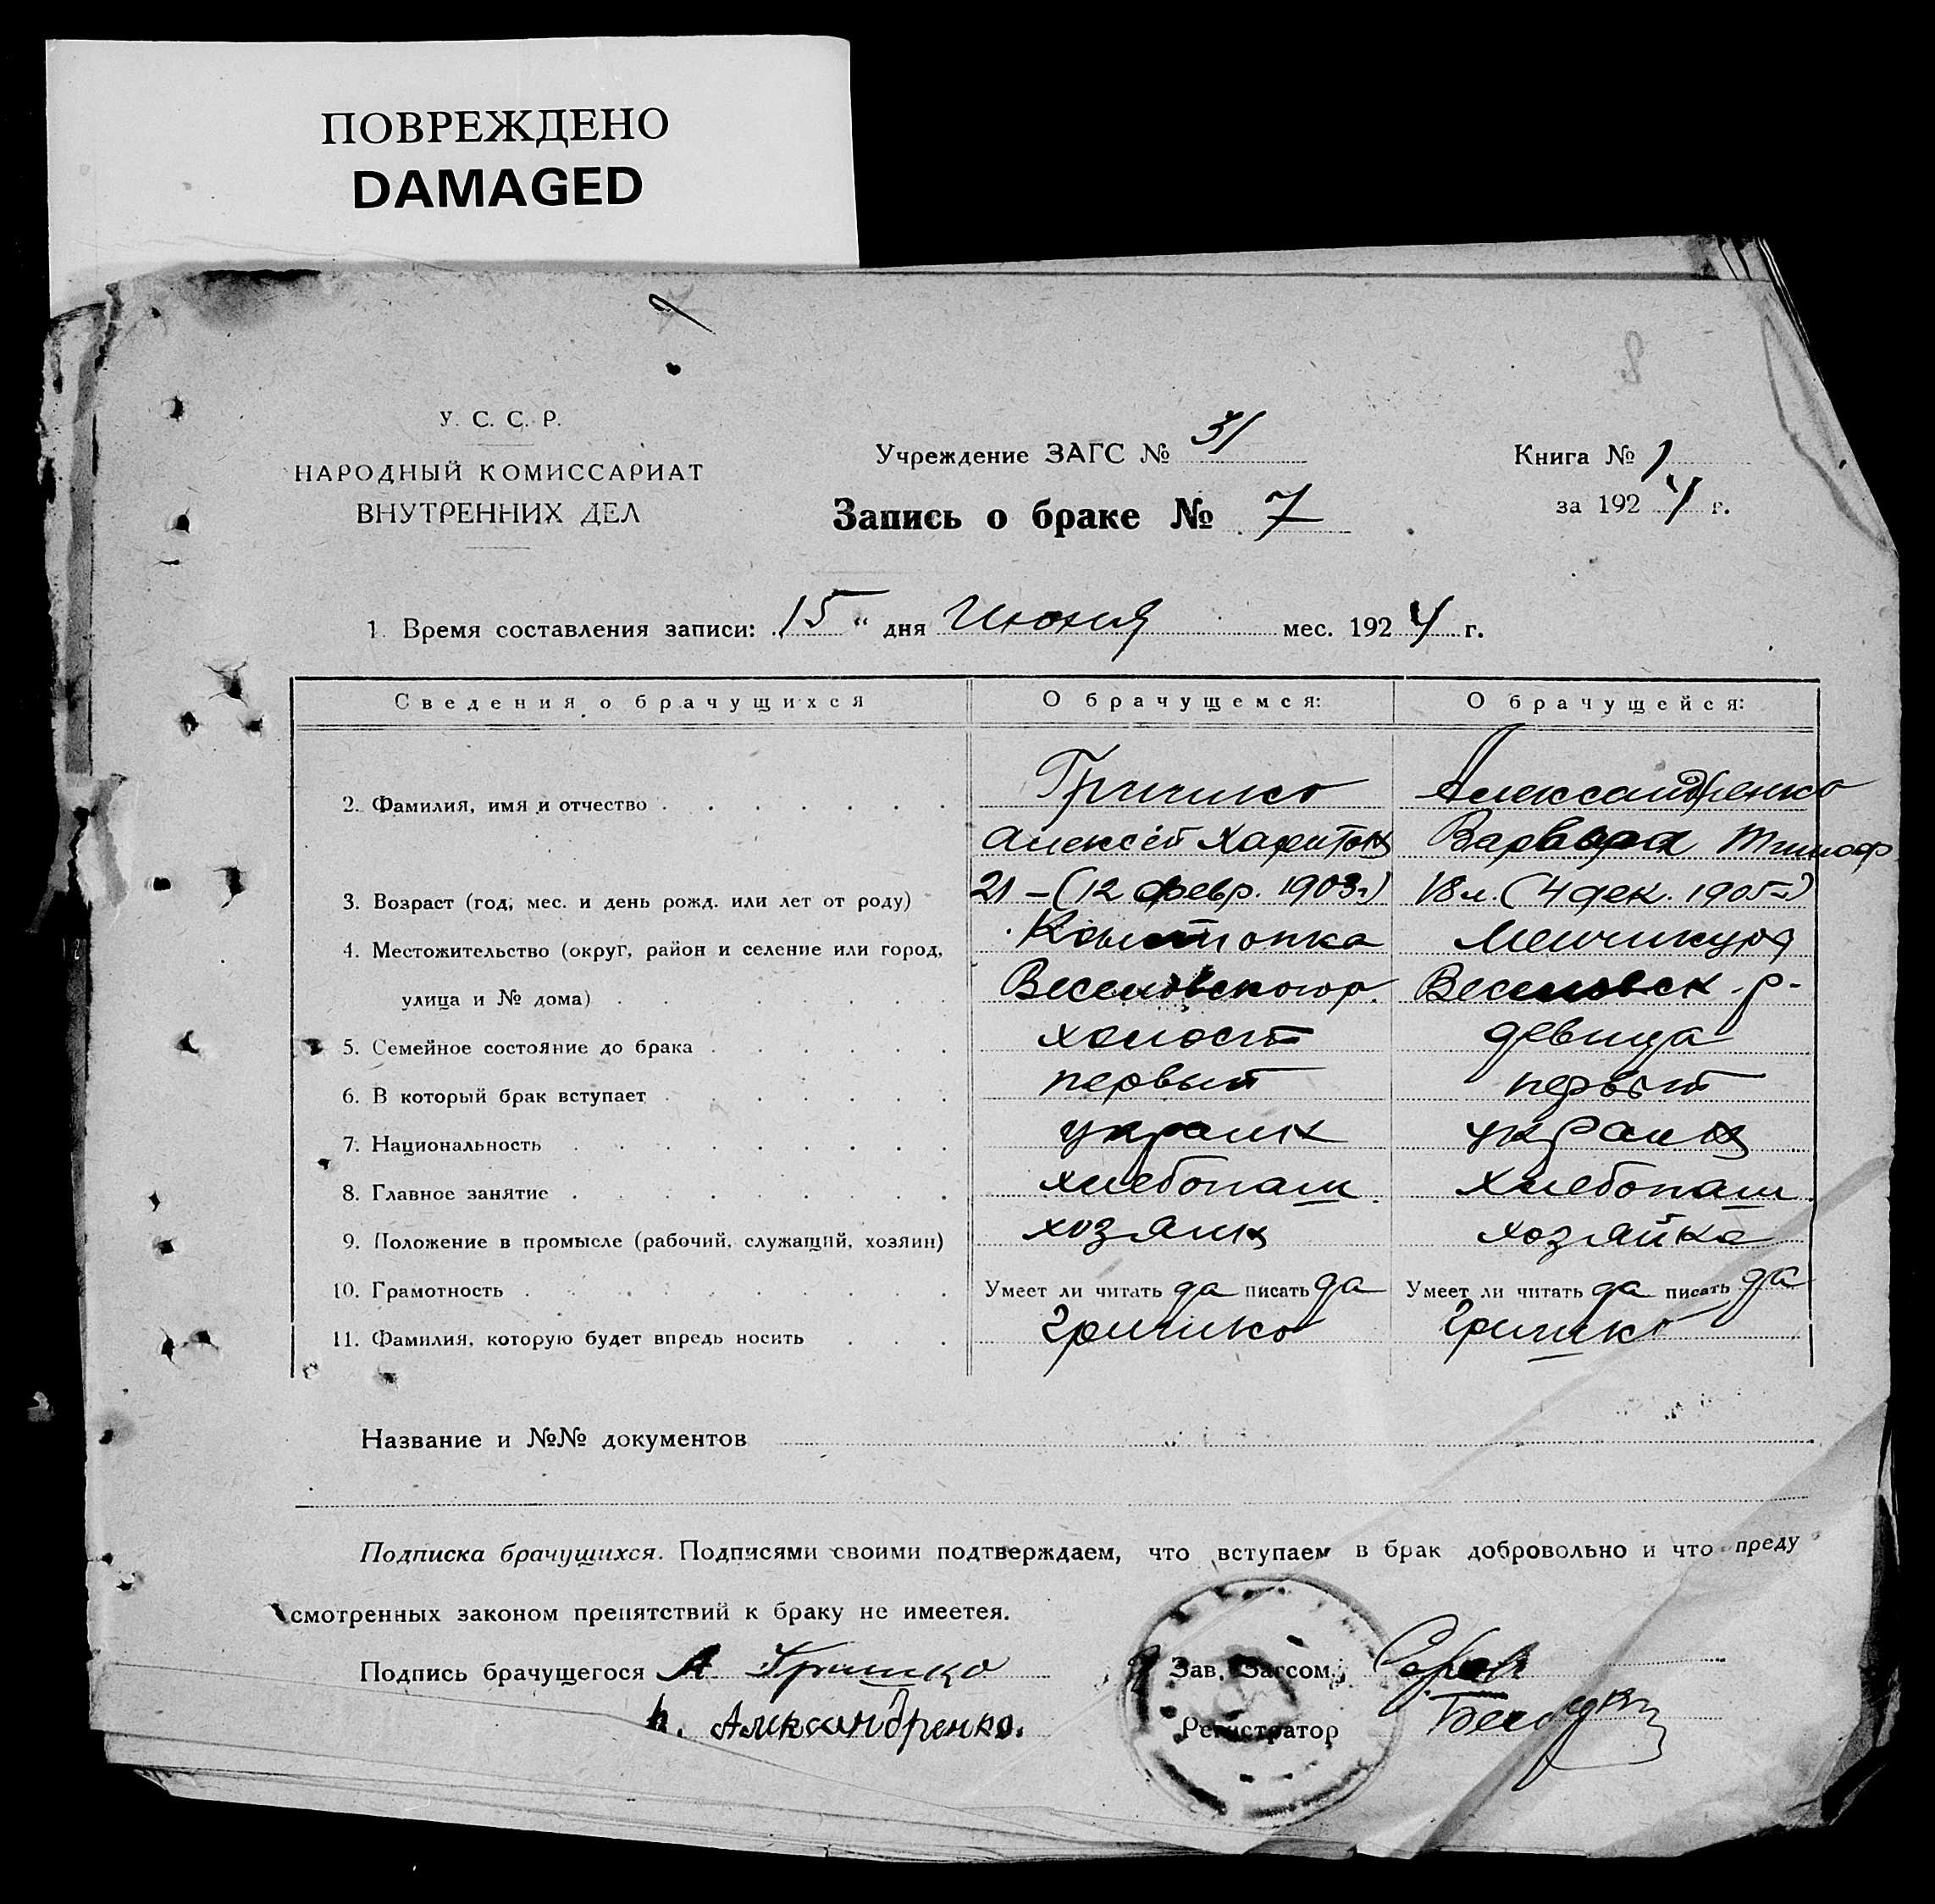 ПОВРЕЖДЕНО
DAMAGED
У. С. С. Р.
НАРОДНЫЙ КОМИССАРИАТ
ВНУТРЕННИХ ДЕЛ
Учреждение ЗАГС № 31
Книга № 1
за 1924 г.
Запись о браке № 7
1. Время составления записи: 15 " дня Июня мес. 1924 г.
Сведения о брачущихся О брачущемся: О брачущейся:
2. Фамилия, имя и отчество Гришко Александренко
Алексей Харитон Варвара Тимоф
3. Возраст (год, мес. и день рожд. или лет от роду) 21 – (12 февр. 1903 г) 18 л. (4 дек. 1905 г)
4. Местожительство (округ, район и селение или город, Менчикура
улица и № дома) Веселовского р. Веселовск - р-
5. Семейное состояние до брака холост девица
6. В который брак вступает первый первый
7. Национальность
8. Главное занятие хлебопаш хлебопаш
9. Положение в промысле (рабочий, служащий, хозяин) хозяин хозяйка
10. Грамотность Умеет ли читать да писать да Умеет ли читать да писать да
11. Фамилия, которую будет впредь носить Гришко Гришко
Название и №№ документов
Подписка брачущихся. Подписями своими подтверждаем, что вступаем в брак добровольно и что преду
смотренных законом препятствий к браку не имеется.
Подпись брачущегося А Гришко Зав. Загсом
Александренко. Регистратор